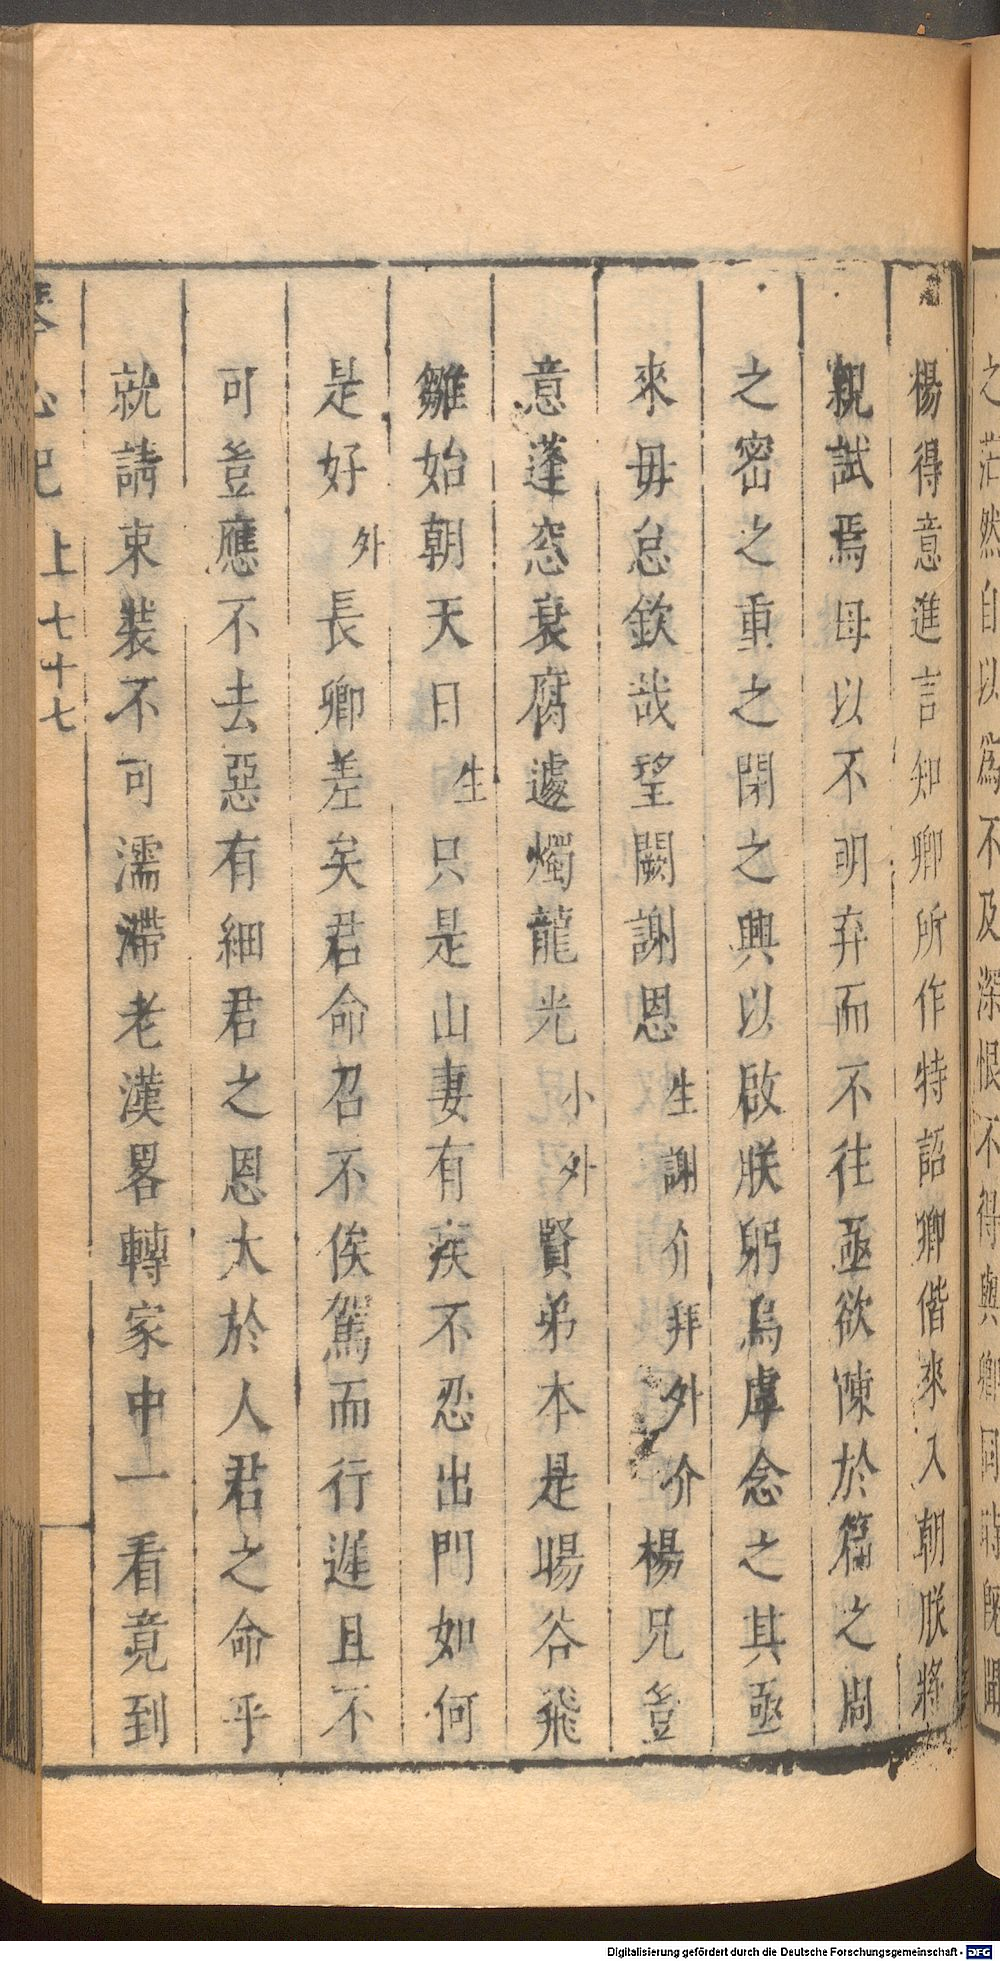 之茫然自以為不及深恨不得與卿同時旣聞
楊得意進言知卿所作特詔卿偕來入朝朕將
親試焉毋以不明弃而不往亟欲陳於篇之周
之密之重之閉之興以啟朕躬為虔念之其亟
來毋怠欽哉望闕謝恩生謝介拜外介楊兄豈
意蓬窓衰腐遽燭龍光小外賢弟本是暘谷飛
雛始朝天日生只是山妻有疾不忍出門如何
是好外長卿差矣君命召不俟駕而行遲且不
可豈應不去惡有細君之恩大於人君之命乎
就請束裝不可濡滯老漢畧轉家中一看竟到
琴心記上七十七
Digitalisierung gefördert durch die Deutsche Forschungsgemeinschaft - DFG